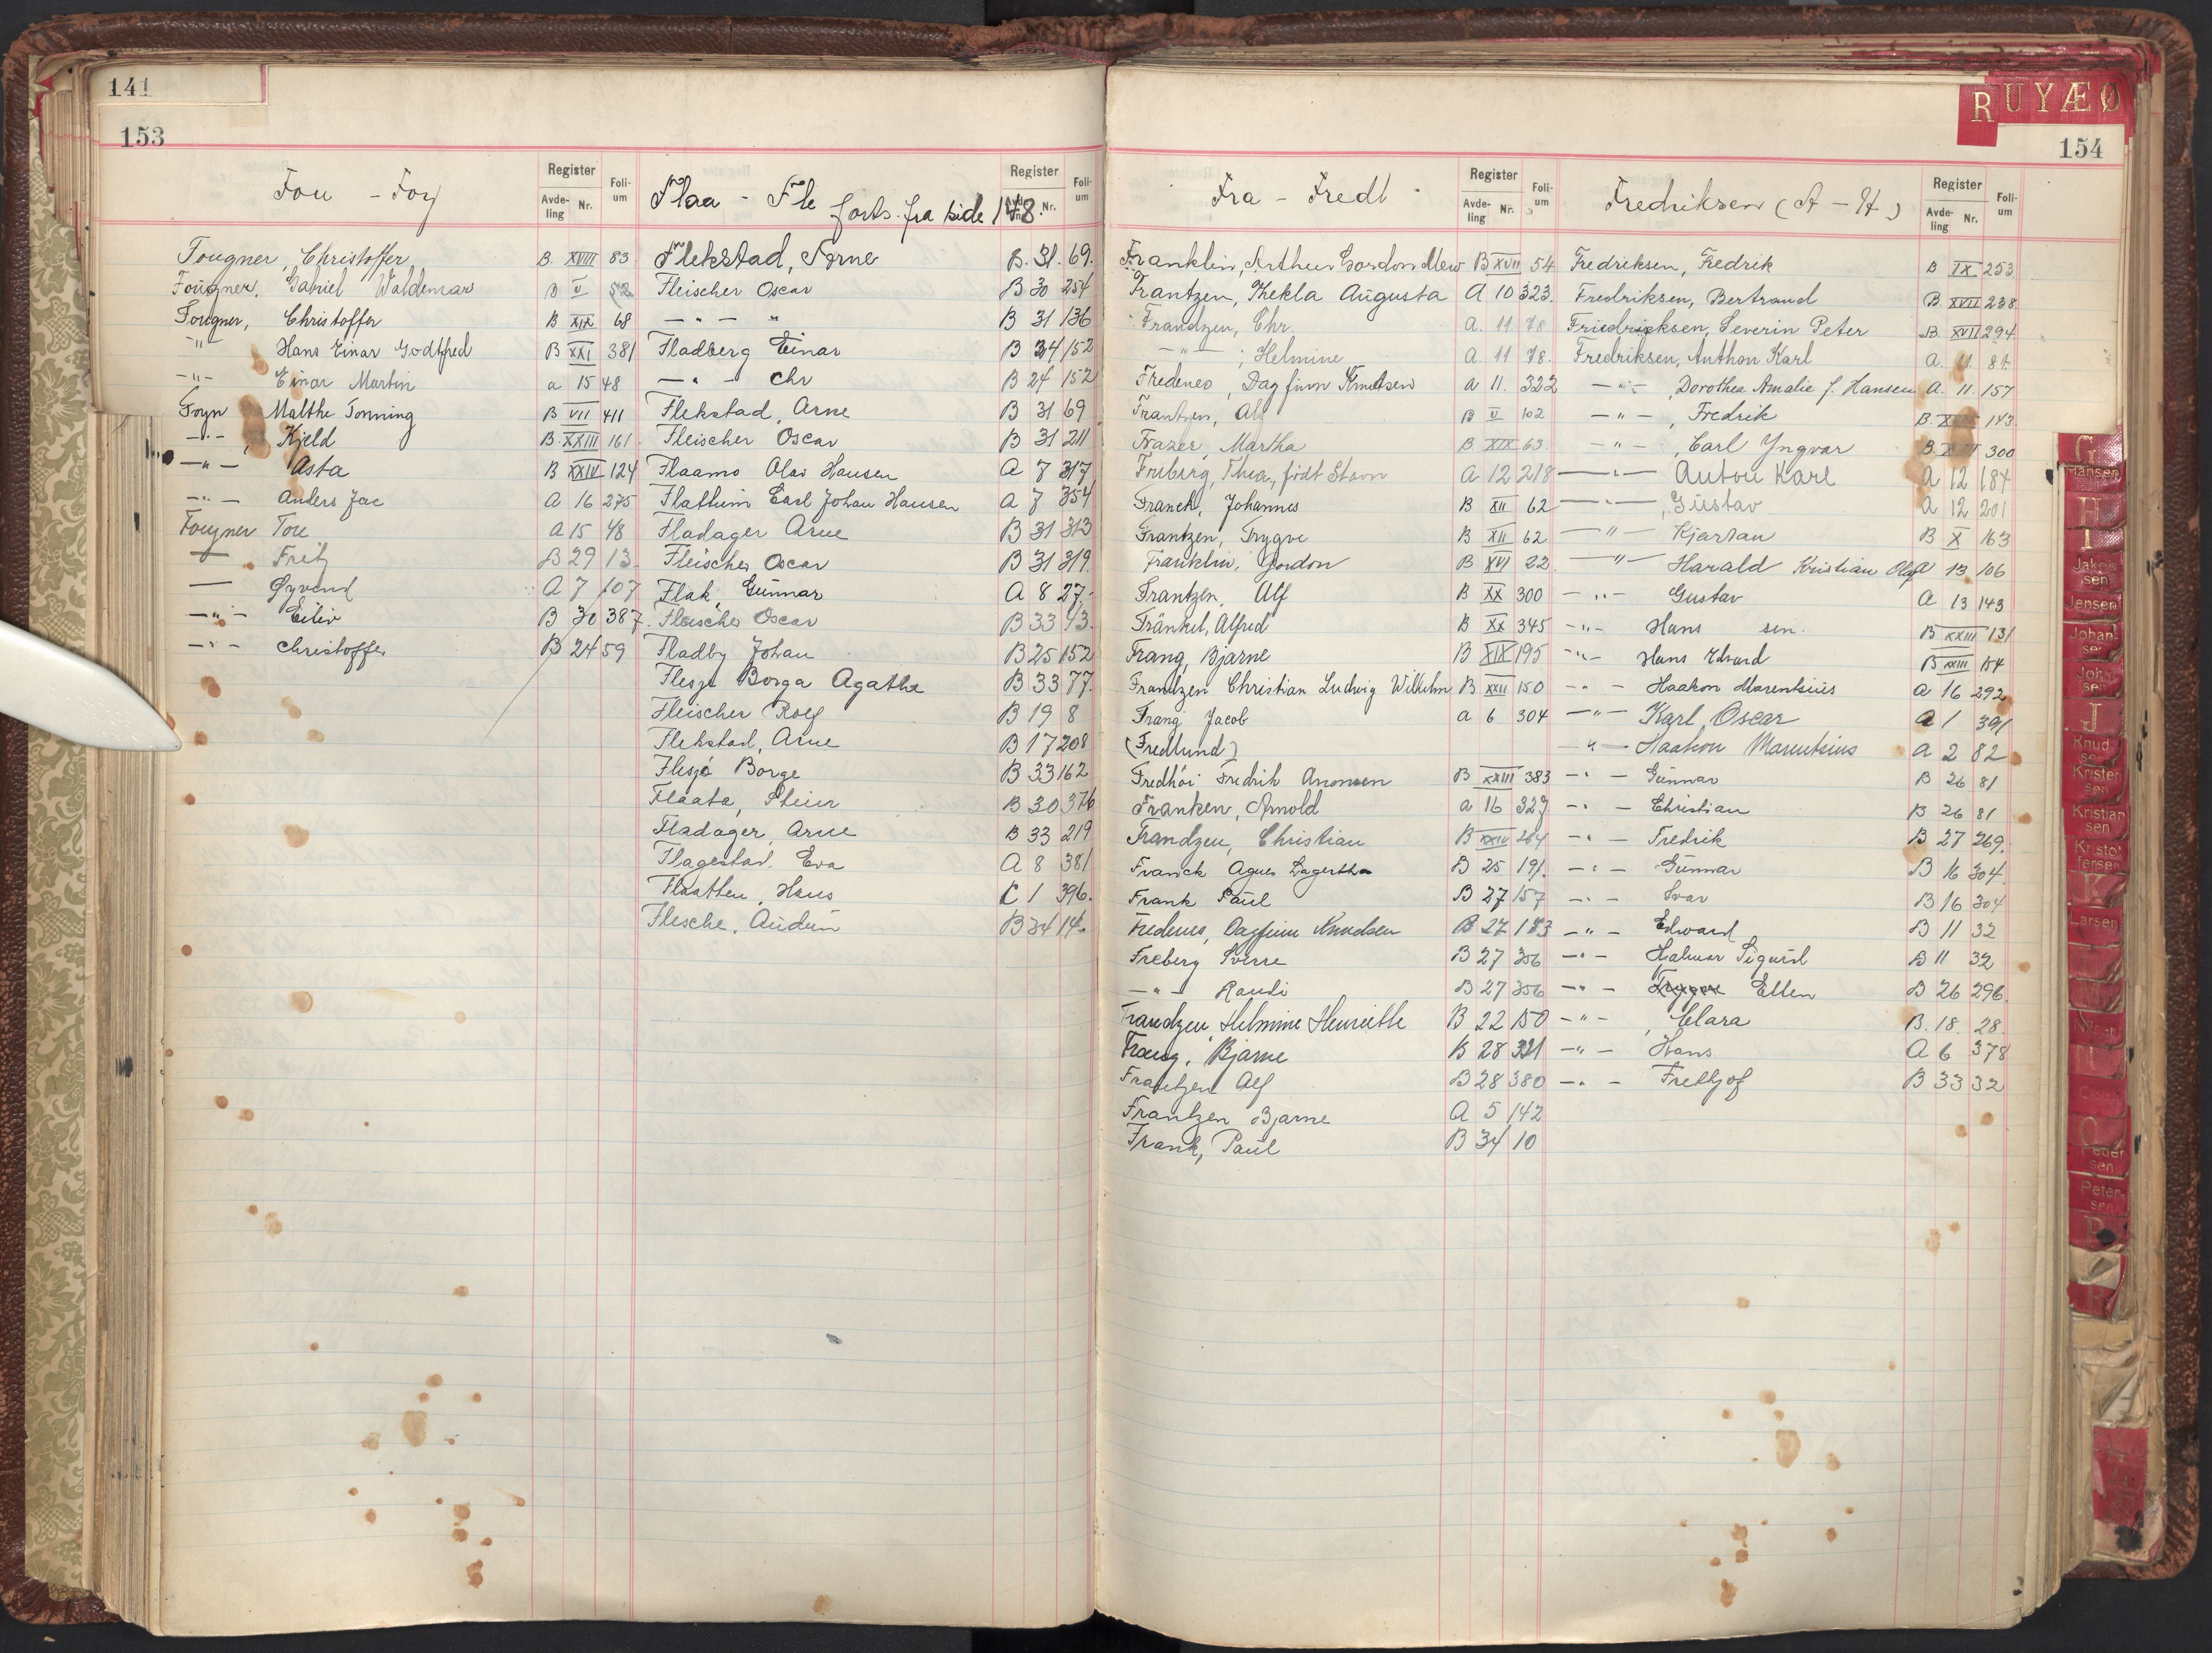 141
153
Fou - Foy
Register
Avde-ling Nr.
Foli-um
Fougner, Christoffer B. XVIII 83
Fougner, Gabriel Waldemar B V 52
Fougner, Christoffer B XIX 68
-"- Hans Einar Godtfred B XXI 381
-"- Einar Martin a 15 48
Foyn Malthe Tonning B VII 411
-"-, Kjeld B. XXIII 161
-"- Asta B XXIV 124
-"- Anders Jac A 16 275
Fougner Tou A 15 48
— Fritz B 29 13
— Øyvend A 7 107
-"- Eiliv B 30 387
-"- Christoffer B 24 59
Flaa - Fle forts. fra side 148.
Register
Nr.
Foli-um
Flekstad, Arne B. 31. 69.
Fleischer Oscar B 30 254
-"- " B 31 136
Fladberg Einar B 34 152
-"- Chr B 24 152
Flekstad, Arne B 31 69
Fleischer Oscar B 31 211
Flaamo Olav Hansen A 7 317
Flathum Carl Johan Hansen A 7 354
Fladager Arne B 31 313
Fleischer Oscar B 31 319.
Flak, Gunnar A 8 27
Fleischer Oscar B 33 43.
Fladby Johan B 25 152
Flesjø Borga Agathe B 33 77.
Fleischer Rolf B 19 8
Flekstad, Arne B 17 208
Flesjø Borge B 33 162
Flaata, Steier B 30 376
Fladager, Arne B 33 219
Flagestad. Eva A 8 381
Flaatten, Hans C 1 396.
Flesche, Audun B 34 14.
R U Y Æ Ø
154
Fra - Fredl
Register
Avde-ling Nr.
Foli-um
Franklin, Arthur Gordon Mew B XVII 54
Frantzen, Thekla Augusta A 10 323.
Frandzen, Chr. A. 11. 78
-"-; Helmine A. 11 78.
Fredenes, Dagfinn Knutsen a 11. 322
Frantzen, Alf B V 102
Frazer, Martha B. XIX 63
Friberg, Thea, født Stavn A 12 218
Franck, Johannes B XII 62
Frantzen, Trygve B XII 62
Franklin, Gordon B XVI 22.
Frantzen, Alf B XX 300
Fränkel, Alfred B XX 345
Frang, Bjarne B XIX 195
Frandzen Christian Ludvig Wilhelm B XXII 150
Frang Jacob a 6 304
(Fredlund)
Fredhöi Fredrik Anonsen B XXIII 383
Franken, Arnold a 16 327.
Frandzen, Christian B XXIV 264
Franck Agnes Dagertha B 25 191.
Frank Paul B 27 157
Fredenes, Dagfinn Knudsen B 27 183
Freberg Sverre B 27 356
-"- Randi B 27 356
Frandzen, Helmine Henriette B 22 150
Frang, Bjarne B 28 321
Frantzen Alf B 28 380
Frantzen Bjarne A 5 142
Frank, Paul B 34 10
Fredriksen (A - H)
Register
Avde-ling Nr.
Foli-um
Fredriksen, Fredrik B IX 253
Fredriksen, Bertrand B. XVII 238
Friedricksen, Severin Peter B. XVII 294
Fredriksen, Anthon Karl A. 11. 81
-"-, Dorothea Amalie f. Hansen A. 11. 157
-"-, Fredrik 143.
-"-, Carl Yngvar 300
-"- Anton Karl A 12 184
-"-, Gustav A 12 201
-"- Kjartan B X 163
-"- Harald Kristian Olaf A 13 106
-"- Gustav A 13 143
-"- Hans sen. B XXIII 131
-"- Hans Edvard B XXIII 154
-"- Haakon Marentsius a 16 292
-"- Karl, Oscar A 1 391
-"- Haakon Marentsius A 2 82
-"- Gunnar B 26 81
-"- Christian B 26 81
-"- Fredrik B 27 269.
-"- Gunnar B 16 304.
-"- Ivar B 16 304
-"- Edward B 11 32
-"- Halvar Sigurd B 11 32
-"- Ellen B 26 296.
-"-, Clara B. 18. 28.
-"- Hans A 6 378
-"- Frethjof B 33 32
G
Hansen
H
I
Jakob sen
Jensen
Johan-sen
Joh sen
J
Knud sen
Krister sen
Kristian sen
Kristof fersen
K
Larsen
Peder sen
Peter-sen